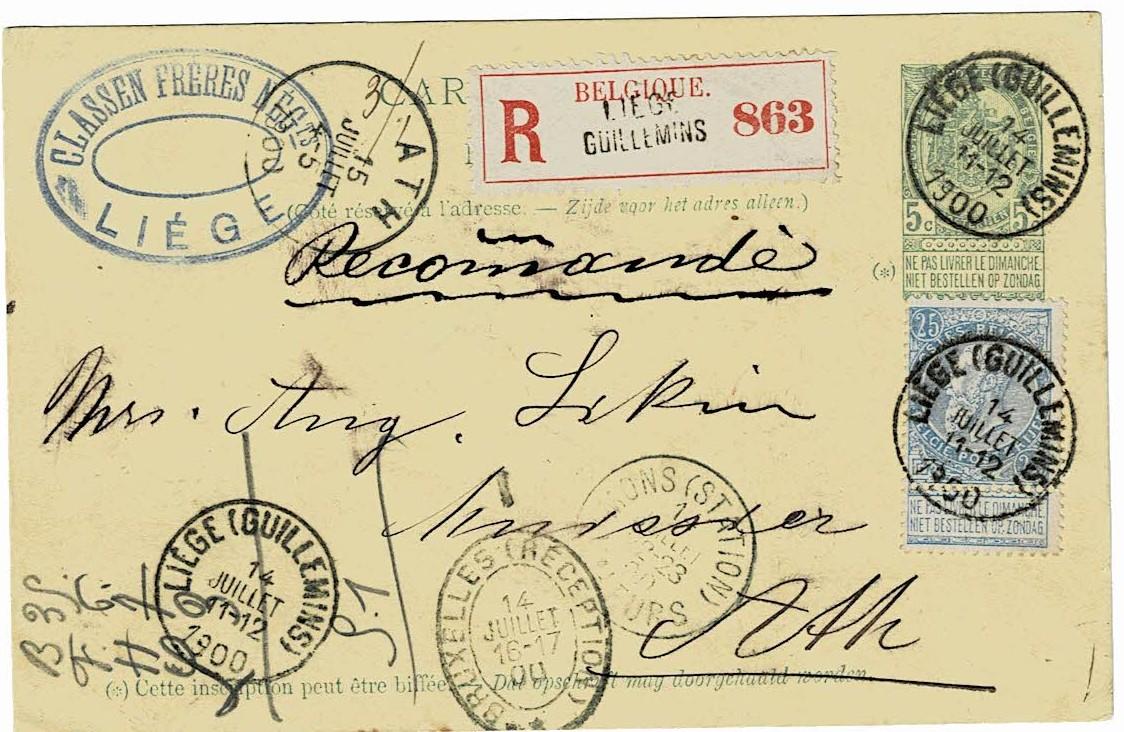 CLASSEN FRÈRES NÉGTS
LIÉGE
ATH
15
JUILLET
5
00
3
CAR
R
BELGIQUE.
LIÉGE
GUILLEMINS
863
(Côté réservé à l'adresse. — Zijde voor het adres alleen.)
LIÉGE (GUILLEMINS)
14
JUILLET
11-12
1900
5c 5
(*) NE PAS LIVRER LE DIMANCHE.
NIET BESTELLEN OP ZONDAG
Recommandé
25
LIÉGE (GUILLEMINS)
14
JUILLET
11-12
1900
NE PAS LIVRER LE DIMANCHE
NIET BESTELLEN OP ZONDAG
Mrs. Aug.
Huissier
Ath
MONS (STATION)
LIÉGE (GUILLEMINS)
14
JUILLET
11-12
1900
BRUXELLES (RÉCEPTION)
14
JUILLET
16-17
00
B 35
(*) Cette inscription peut être biffée. — Dat opschrift mag doorgehaald worden.